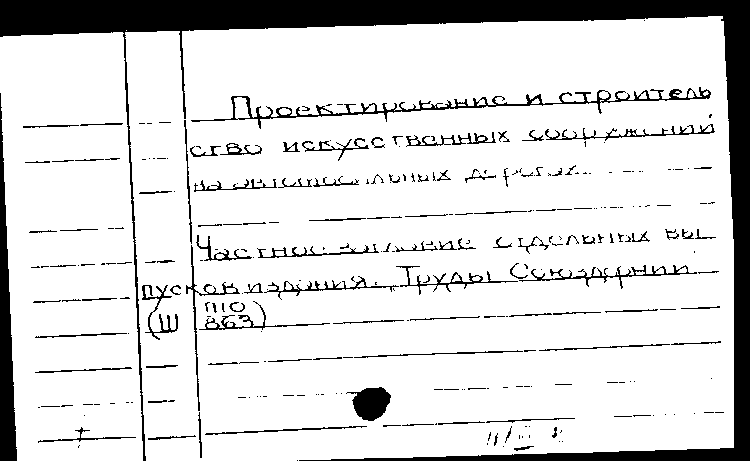 Проектирование и строитель
ство искусственных сооружений
на автомобильных дорогах.
Частное заглавие отдельных вы
пусков издания. Труды Союздорнии
(Ш П10
863)